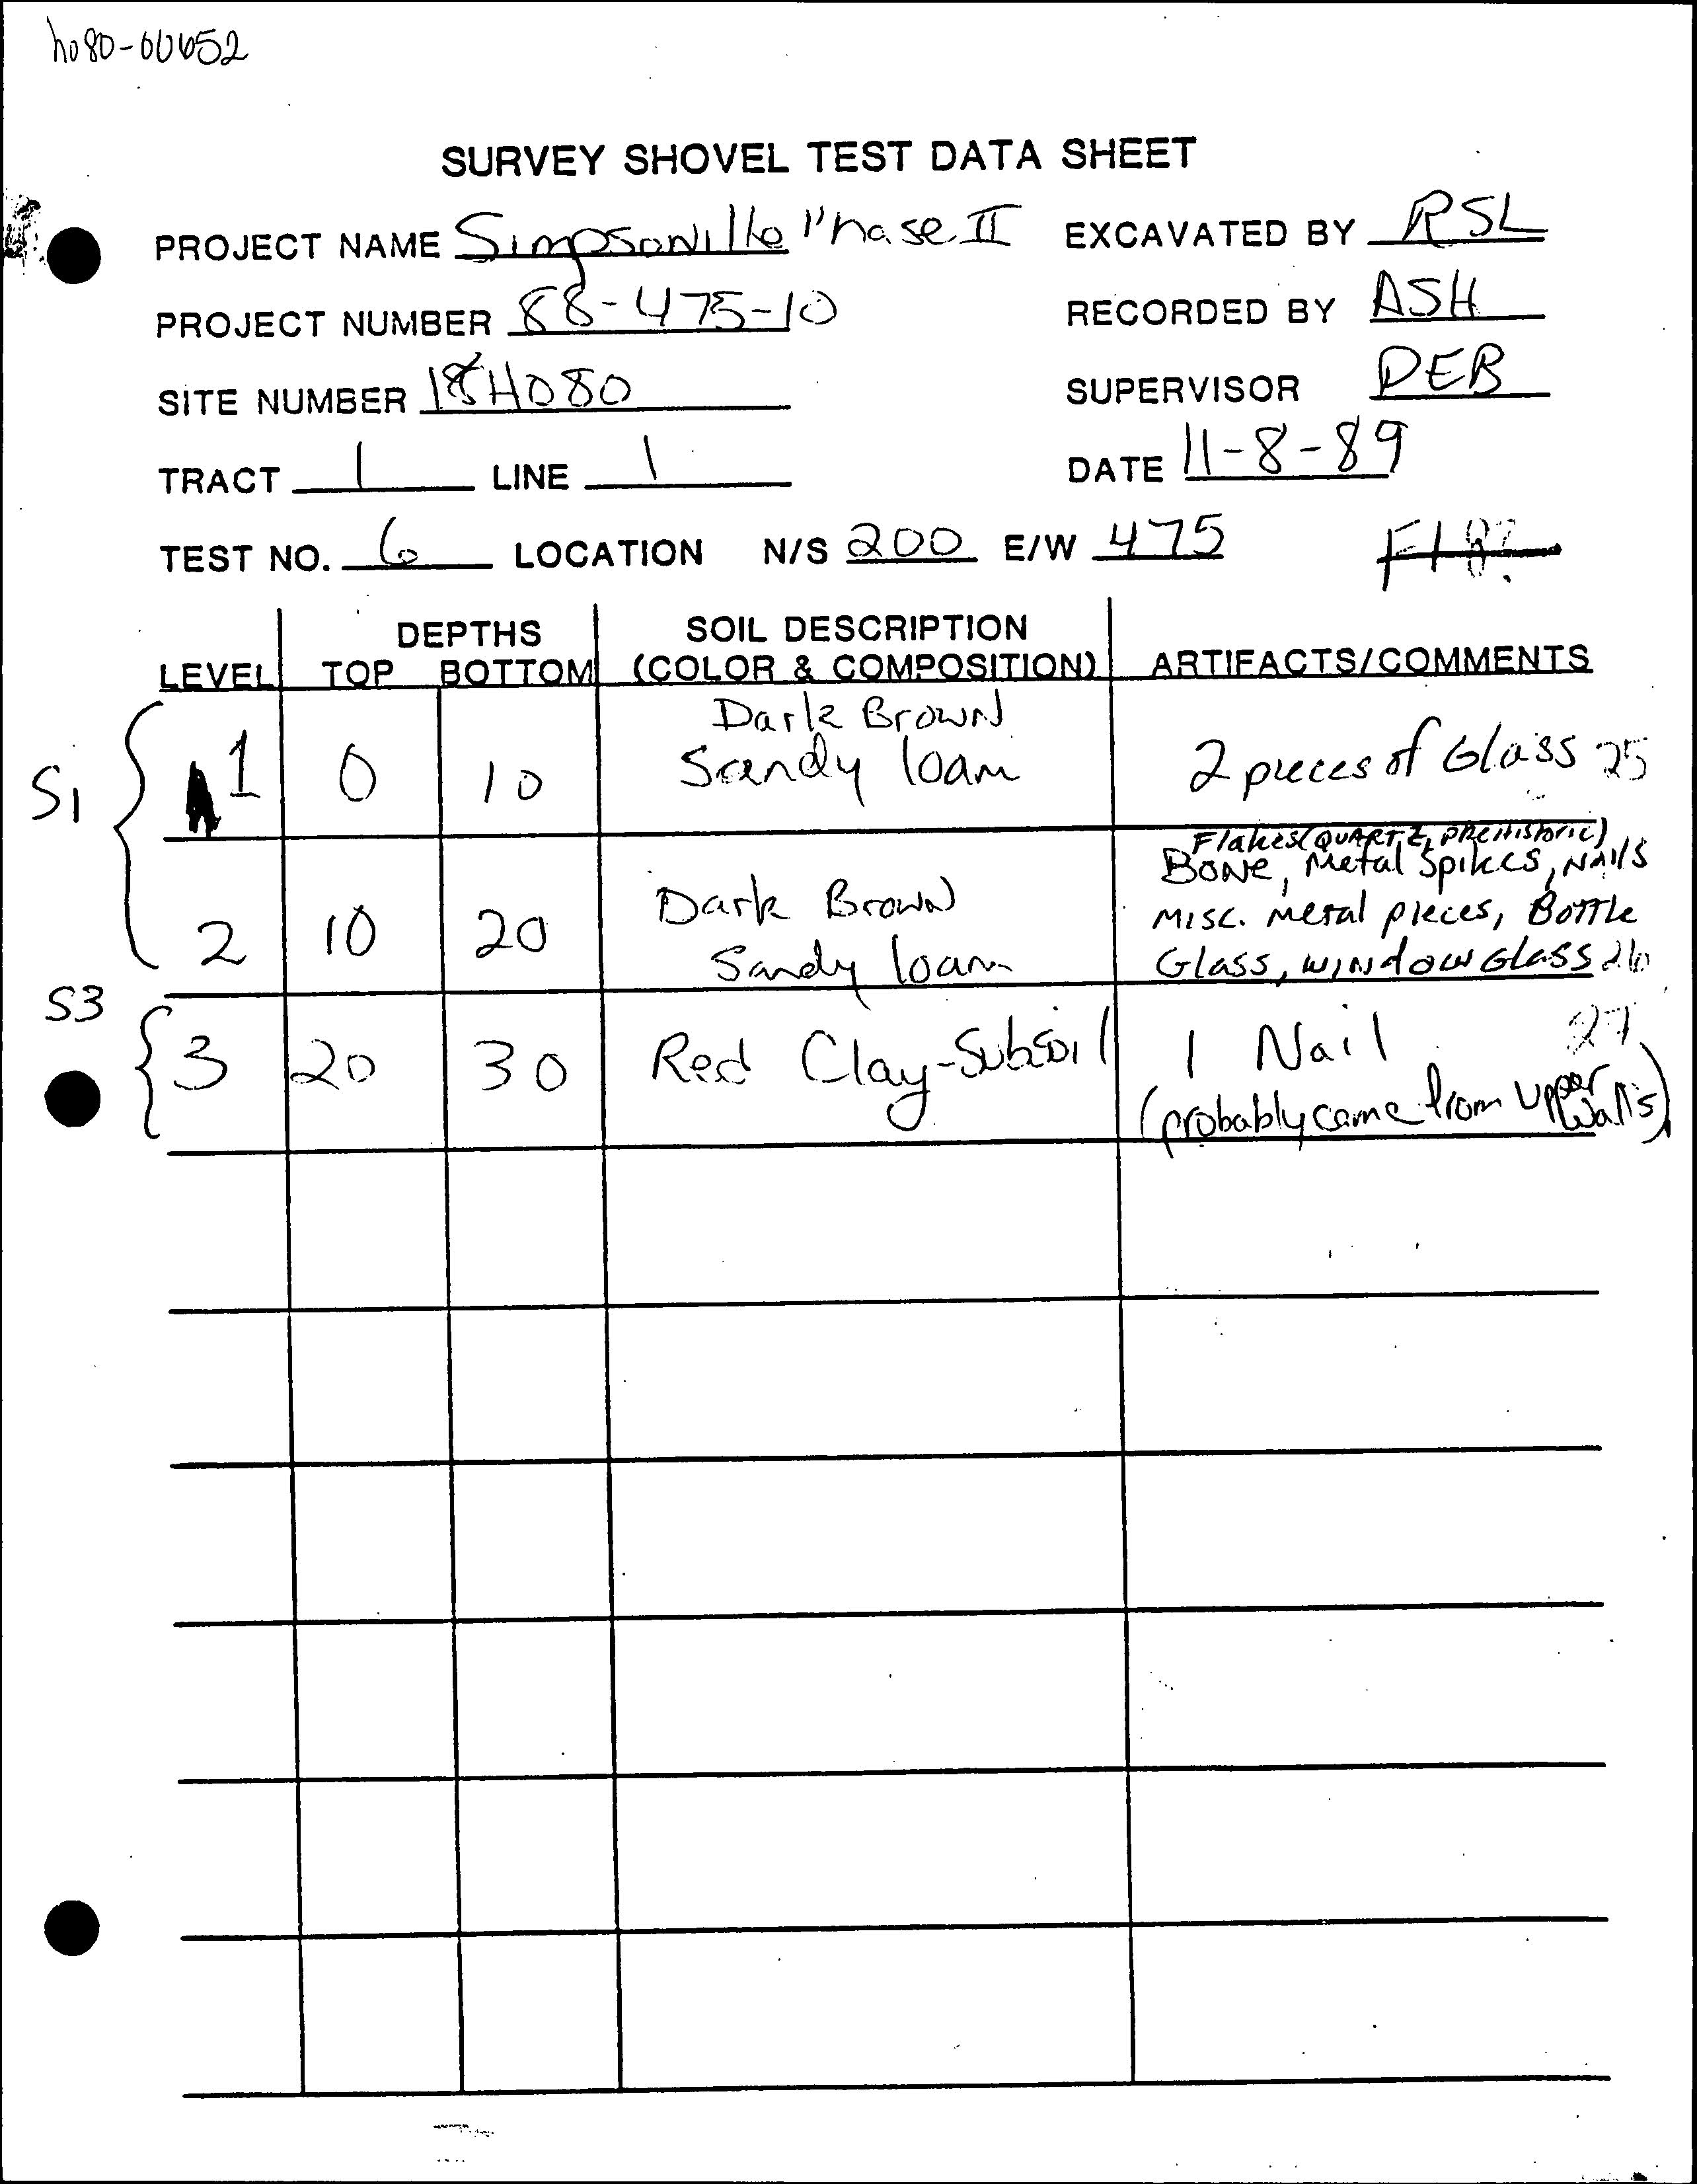 ho80-00652
SURVEY SHOVEL TEST DATA SHEET
PROJECT NAME Simpsonville Phase II EXCAVATED BY RSL
PROJECT NUMBER 88-475-10 RECORDED BY ASH
SITE NUMBER 18HO80 SUPERVISOR DEB
TRACT 1 LINE 1 DATE 11-8-89
TEST NO. 6 LOCATION N/S 200 E/W 475
DEPTHS SOIL DESCRIPTION
LEVEL TOP BOTTOM (COLOR & COMPOSITION) ARTIFACTS/COMMENTS
Dark Brown
S1 1 0 10 Sandy loam 2 pieces of Glass 25
Flakes (QUARTZ, prehistoric)
BONE, Metal Spikes, NAILS
2 10 20 Dark Brown Misc. metal pieces, Bottle
Sandy loam Glass, window Glass 26
S3
3 20 30 Red Clay-Subsoil 1 Nail 27
(probably came from upper walls)